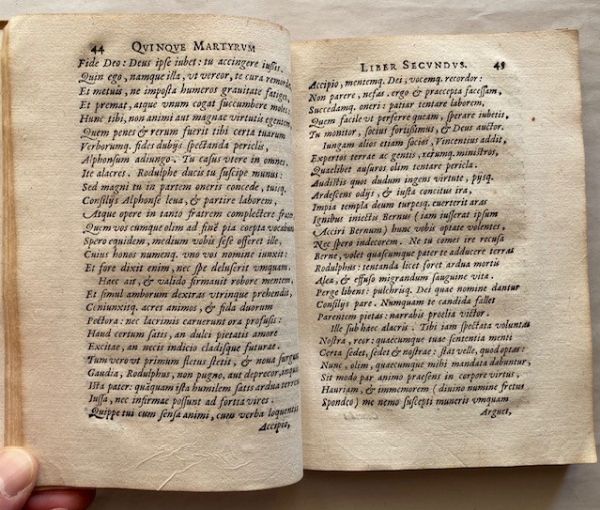 44 QVINQVE MARTYRVM
Fide Deo: Deus ipse iubet: tu accingere iussit.
Quin ego, namque illa, vt vereor, te cura remordet,
Et metuis, ne imposta humeros grauitate fatiget,
Et premat, atque vnum cogat succumbere moles:
Hunc tibi, non animi aut magnae virtutis egentem,
Quem penes & rerum fuerit tibi certa tuarum
Verborumq. fides dubijs spectanda periclis,
Alphonsum adiungo. Tu casus vtere in omnes.
Ite alacres. Rodulphe ducis tu suscipe munus:
Sed magni tu in partem oneris concede, tuisq.
Consilijs Alphonse leua, & partire laborem,
Atque opere in tanto fratrem complectere fratrem
Quem vos cumque olim ad finē pia coepta vocabunt
Spero equidem, medium vobis sese offeret ille,
Cuius honos numenq. vno vos nomine iunxit:
Et fore dixit enim, nec spe deluserit vmquam.
Haec ait, & valido firmauit robore mentem,
Et simul amborum dextras vtrinque prehendit,
Coniunxitq. acres animos, & fida duorum
Pectora: nec lacrimis caruerunt ora profusis:
Haud certum satis, an dulci pietatis amore
Excitae, an necis indicio cladisque futurae.
Tum vero vt primum fletus stetit, & noua surgunt
Gaudia, Rodulphus, non pugno, aut deprecor, inquit,
Ista pater: quāquam ista humilem satis ardua terrent
Iussa, nec infirmae possunt ad fortia vires:
Quippe tui cum sensa animi, cum verba loquentis
Accipio,
LIBER SECVNDVS. 45
Accipio, mentemq. Dei, vocemq. recordor:
Non parere, nefas. ergo & praecepta facessam,
Succedamq. oneri: patiar tentare laborem,
Quem facile vt perferre queam, sperare iubetis,
Tu monitor, socius fortissimus, & Deus auctor.
Iungam alios etiam socios, Vincentius addit,
Expertos terrae ac gentis, rerumq. ministros,
Qualibet ausuros olim tentare pericla.
Audistis quot dudum ingens virtute, pijsq.
Ardescens odijs, & iusta concitus ira,
Impia templa deum turpesq. euerterit aras
Ignibus iniectis Bernus (iam iusserat ipsum
Acciri Bernum) hunc vobis optate volentes,
Nec spero indecorem. Ne tu comes ire recusa
Berne, volet quascumque pater te adducere terras
Rodulphus: tentanda licet foret ardua mortis
Alea, & effuso migrandum sanguine vita.
Perge libens: pulchrisq. Dei quae nomine dantur
Consilijs pare. Numquam te candida fallet
Parentem pietas: narrabis proelia victor.
Ille sub haec alacris. Tibi iam spectata voluntas
Nostra, reor: quaecumque tuae sententia menti
Certa sedet, sedet & nostrae: sta velle, quod optas:
Nunc, olim, quaecumque mihi mandata dabuntur,
Sit modo par animo praesens in corpore virtus,
Hauriam, & immemorem (diuino numine fretus
Spondeo) me nemo suscepti muneris vmquam
Arguet,